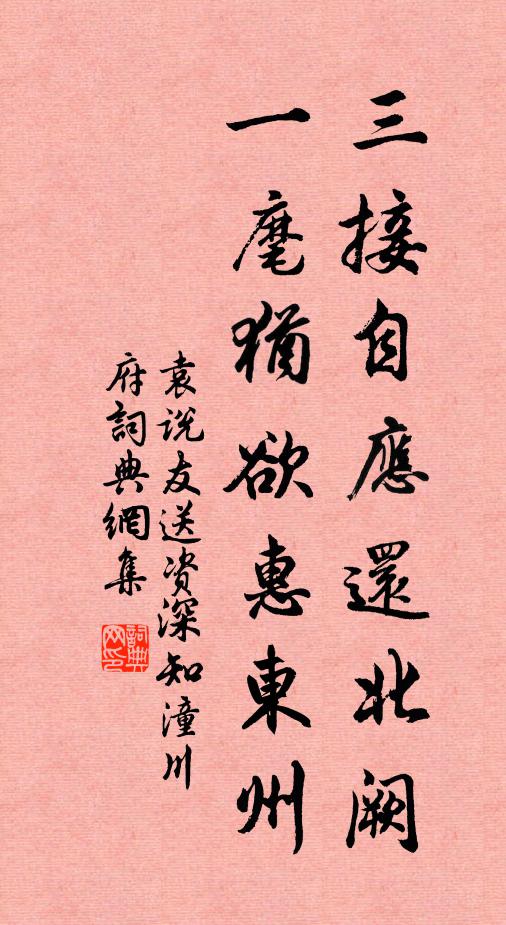 三接自應還北闕
一麾猶欲惠東州
袁说友送资深知潼川
府詞典網集
詞典
网印